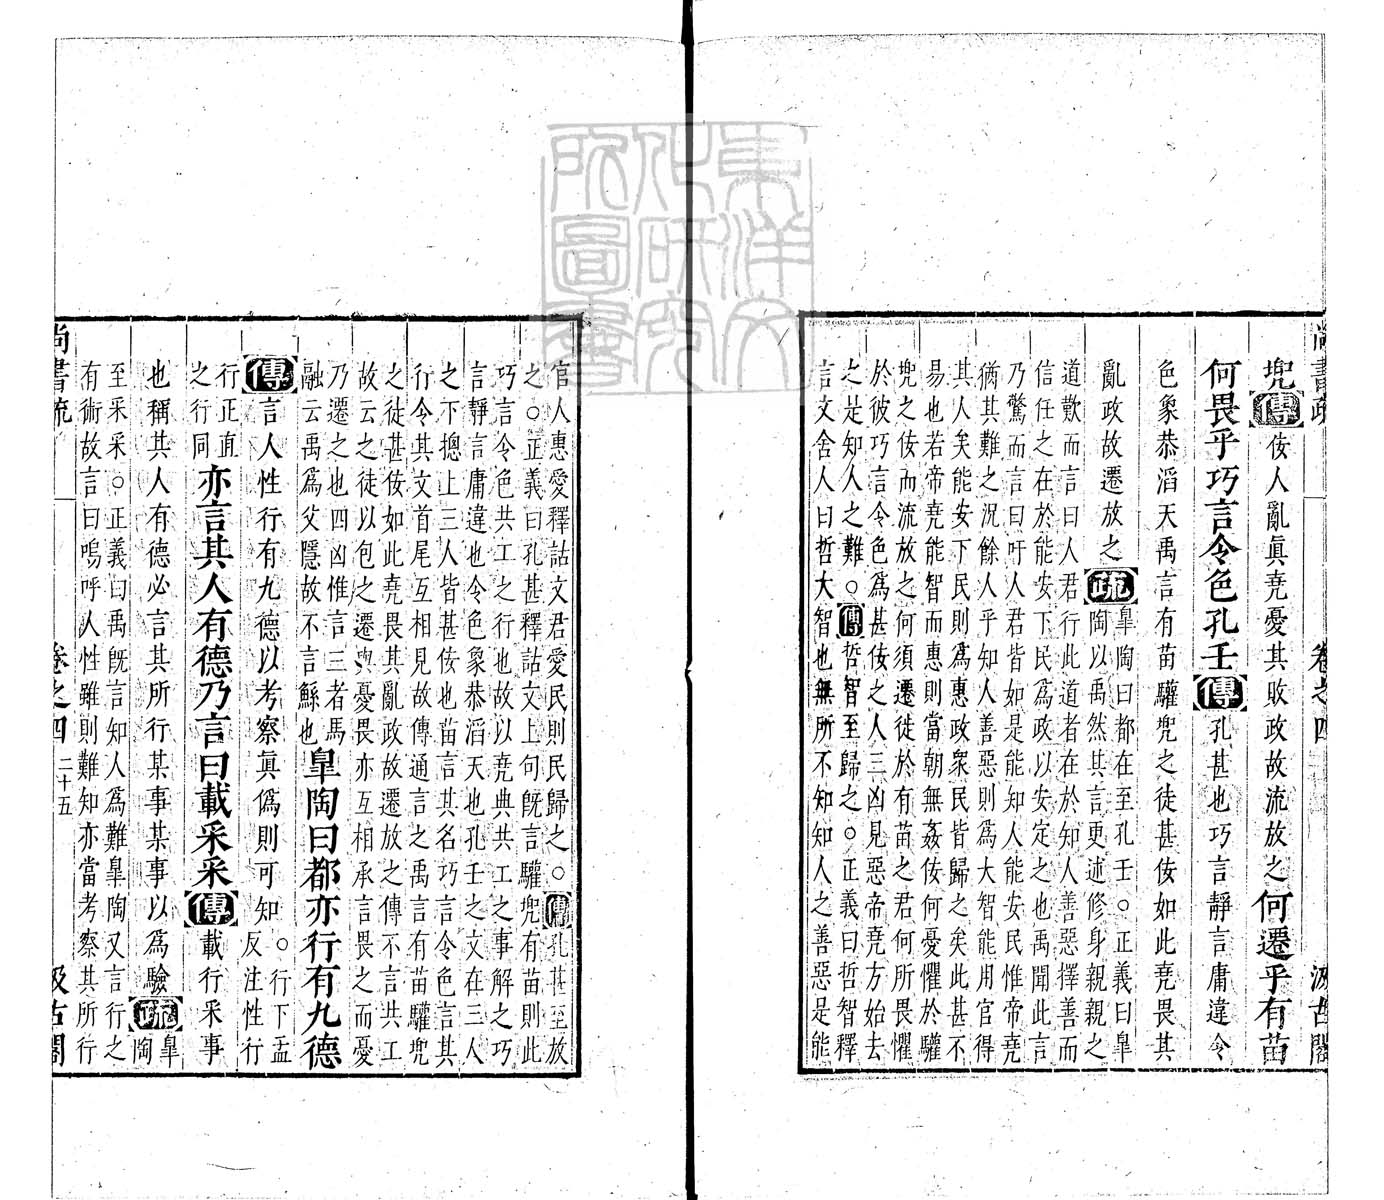 尚書疏 卷之四 汲古閣
兜傳佞人亂眞堯憂其敗政故流放之何遷乎有苗
何畏乎巧言令色孔壬傳孔甚也巧言靜言庸違令
色象恭滔天禹言有苗驩兜之徒甚佞如此堯畏其
亂政故遷放之疏皐陶曰都在至孔壬○正義曰皐
陶以禹然其言更述修身親親之
道歎而言曰人君行此道者在於知人善惡擇善而
信任之在於能安下民爲政以安定之也禹聞此言
乃驚而言曰吁人君皆如是能知人能安民惟帝堯
猶其難之況餘人乎知人善惡則爲大智能用官得
其人矣能安下民則爲惠政衆民皆歸之矣此甚不
易也若帝堯能智而惠則當朝無姦佞何憂懼於驩
兜之佞而流放之何須遷徙於有苗之君何所畏懼
於彼巧言令色爲甚佞之人三凶見惡帝堯方始去
之是知人之難○傳哲智至歸之○正義曰哲智釋
言文舍人曰哲大智也無所不知知人之善惡是能
官人惠愛釋詁文君愛民則民歸之○傳孔甚至放
之○正義曰孔甚釋詁文上句旣言驩兜有苗則此
巧言令色共工之行也故以堯典共工之事解之巧
言靜言庸違也令色象恭滔天也孔壬之文在三人
之下摠上三人皆甚佞也苗言其名巧言令色言其
行令其文首尾互相見故傳通言之禹言有苗驩兜
之徒甚佞如此堯畏其亂政故遷放之傳不言共工
故云之徒以包之遷與憂畏亦互相承言畏之而憂
乃遷之也四凶惟言三者馬
融云禹爲父隱故不言鯀也皐陶曰都亦行有九德
傳言人性行有九德以考察眞僞則可知○行下孟
反注性行
行正直
之行同亦言其人有德乃言曰載采采傳載行采事
也稱其人有德必言其所行某事某事以爲驗疏皐
陶
至采采○正義曰禹旣言知人爲難皐陶又言行之
有術故言曰嗚呼人性雖則難知亦當考察其所行
尚書疏 卷之四 二十五 汲古閣
東洋文化研究所圖書